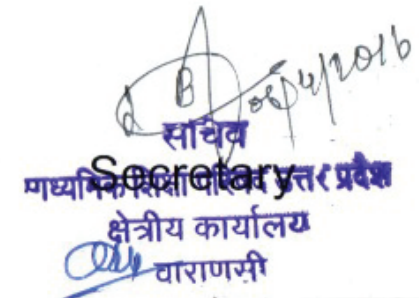 06/4/2016
सचिव
Secretary
माध्यमिक शिक्षा परिषद उत्तर प्रदेश
क्षेत्रीय कार्यालय
वाराणसी